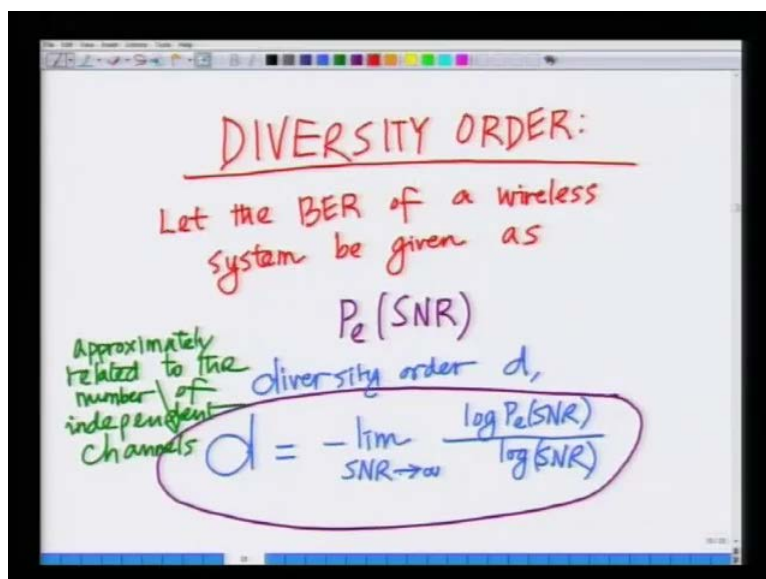 File Edit View Insert Actions Tools Help
DIVERSITY ORDER:
Let the BER of a wireless
system be given as
Pe(SNR)
approximately
related to the
number of
independent
channels
diversity order d,
d = -lim SNR→∞ log Pe(SNR) / log(SNR)